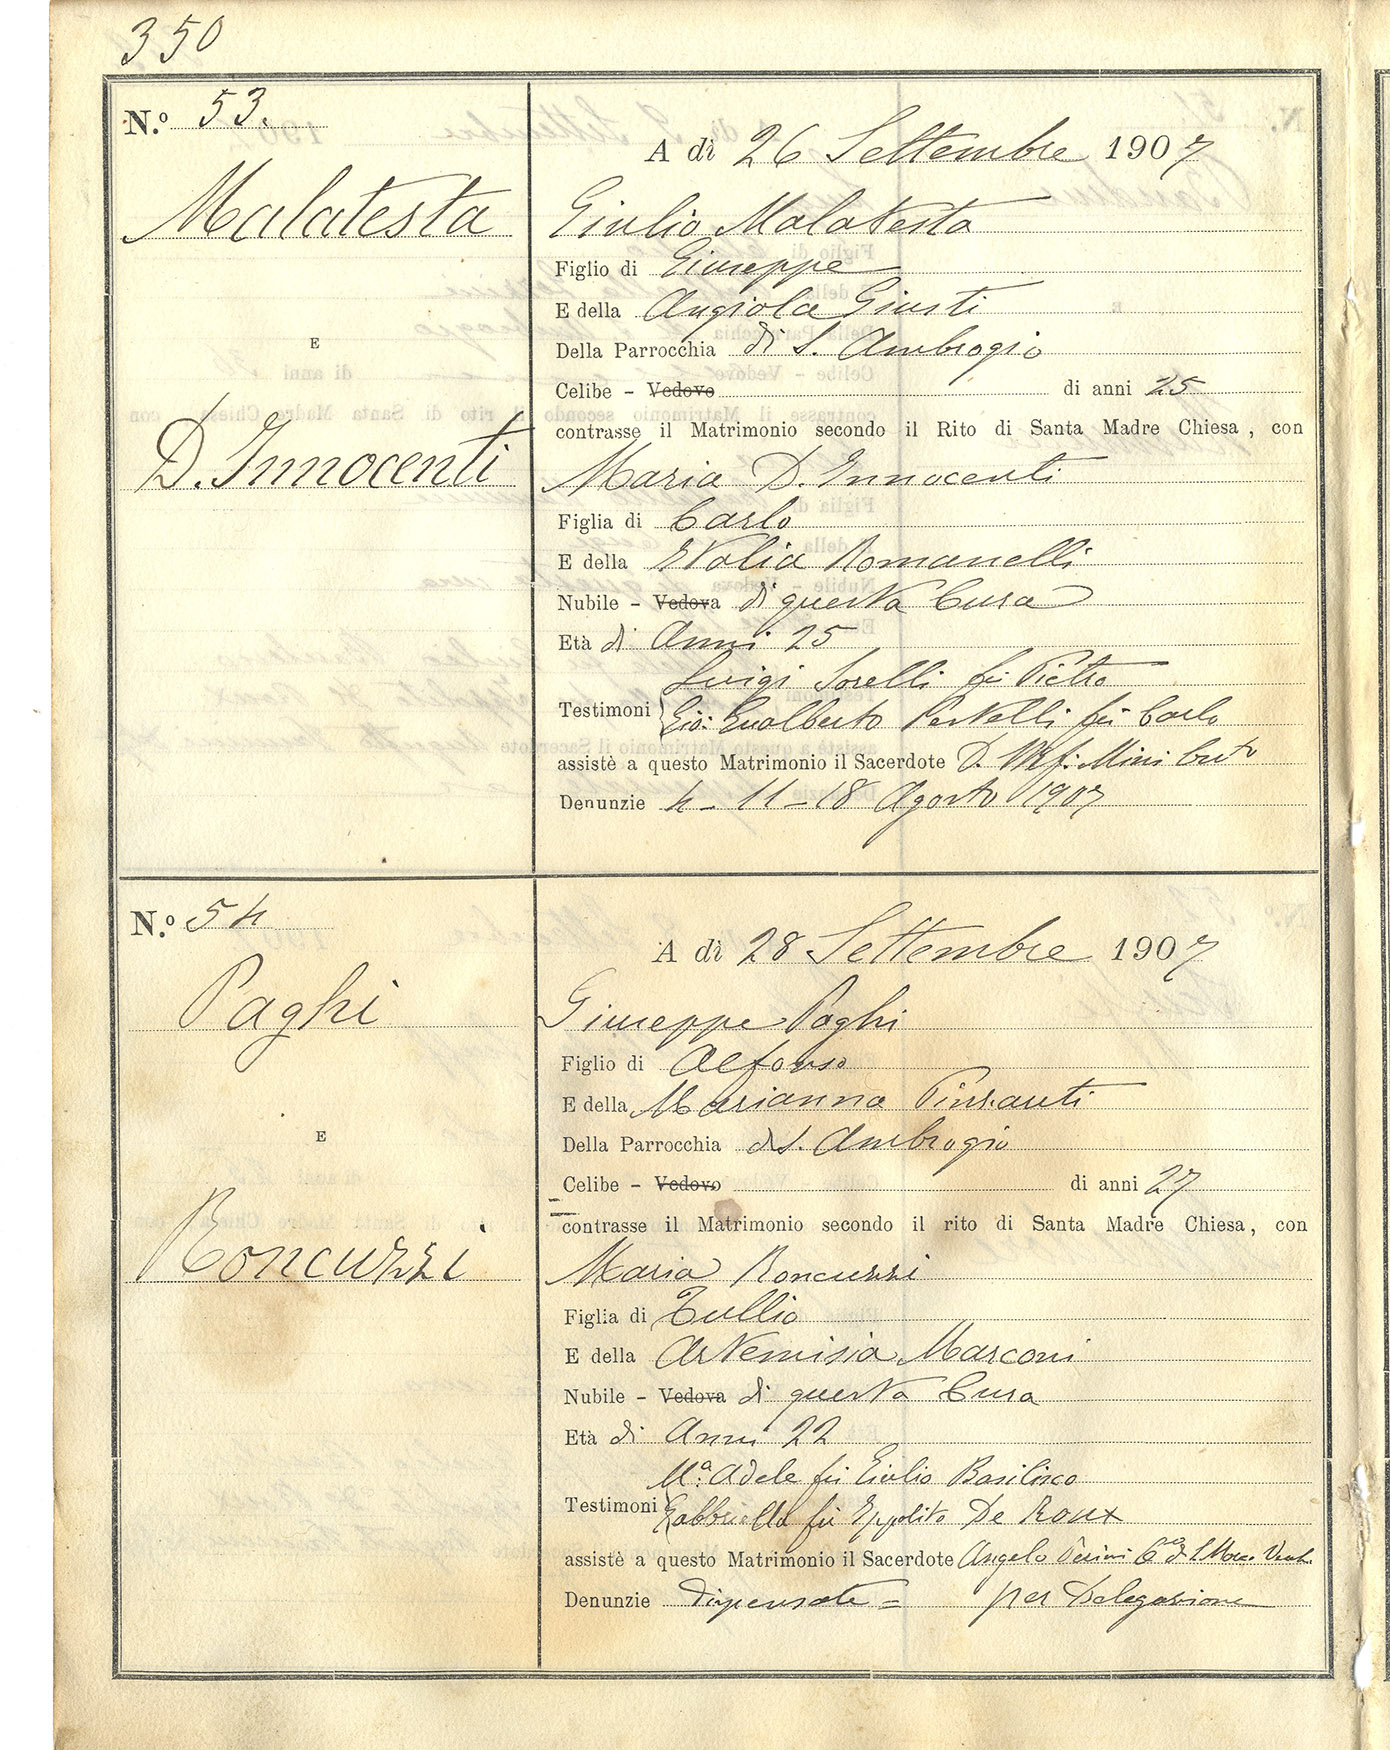 350
N.º 53.
Malatesta
E
D. Innocenti
A dì 26 Settembre 1907
Giulio Malatesta
Figlio di Giuseppe
E della Angiola Giusti
Della Parrocchia di S. Ambrogio
Celibe - Vedovo di anni 25
contrasse il Matrimonio secondo il Rito di Santa Madre Chiesa, con
Maria D. Innocenti
Figlia di Carlo
E della Italia Romanelli
Nubile - Vedova di questa Cura
Età di Anni 25
Luigi Sorelli fu Pietro
Testimoni Gio: Gualberto fu Carlo
assistè a questo Matrimonio il Sacerdote D. Mini
Denunzie 4 - 11 - 18 Agosto 1907
N.º 54
Paghi
E
Roncuzzi
A dì 28 Settembre 1907
Giuseppe Paghi
Figlio di Alfonso
E della Marianna Pinzauti
Della Parrocchia di S. Ambrogio
Celibe - Vedovo di anni 27
contrasse il Matrimonio secondo il rito di Santa Madre Chiesa, con
Maria Roncuzzi
Figlia di Tullio
E della Artemisia Marconi
Nubile - Vedova di questa Cura
Età di Anni 22
Mª. Adele fu Giulio Basilisco
Testimoni Gabbriella fu Ippolito De Roux
assistè a questo Matrimonio il Sacerdote Angelo
Denunzie dispensate = per Delegazione